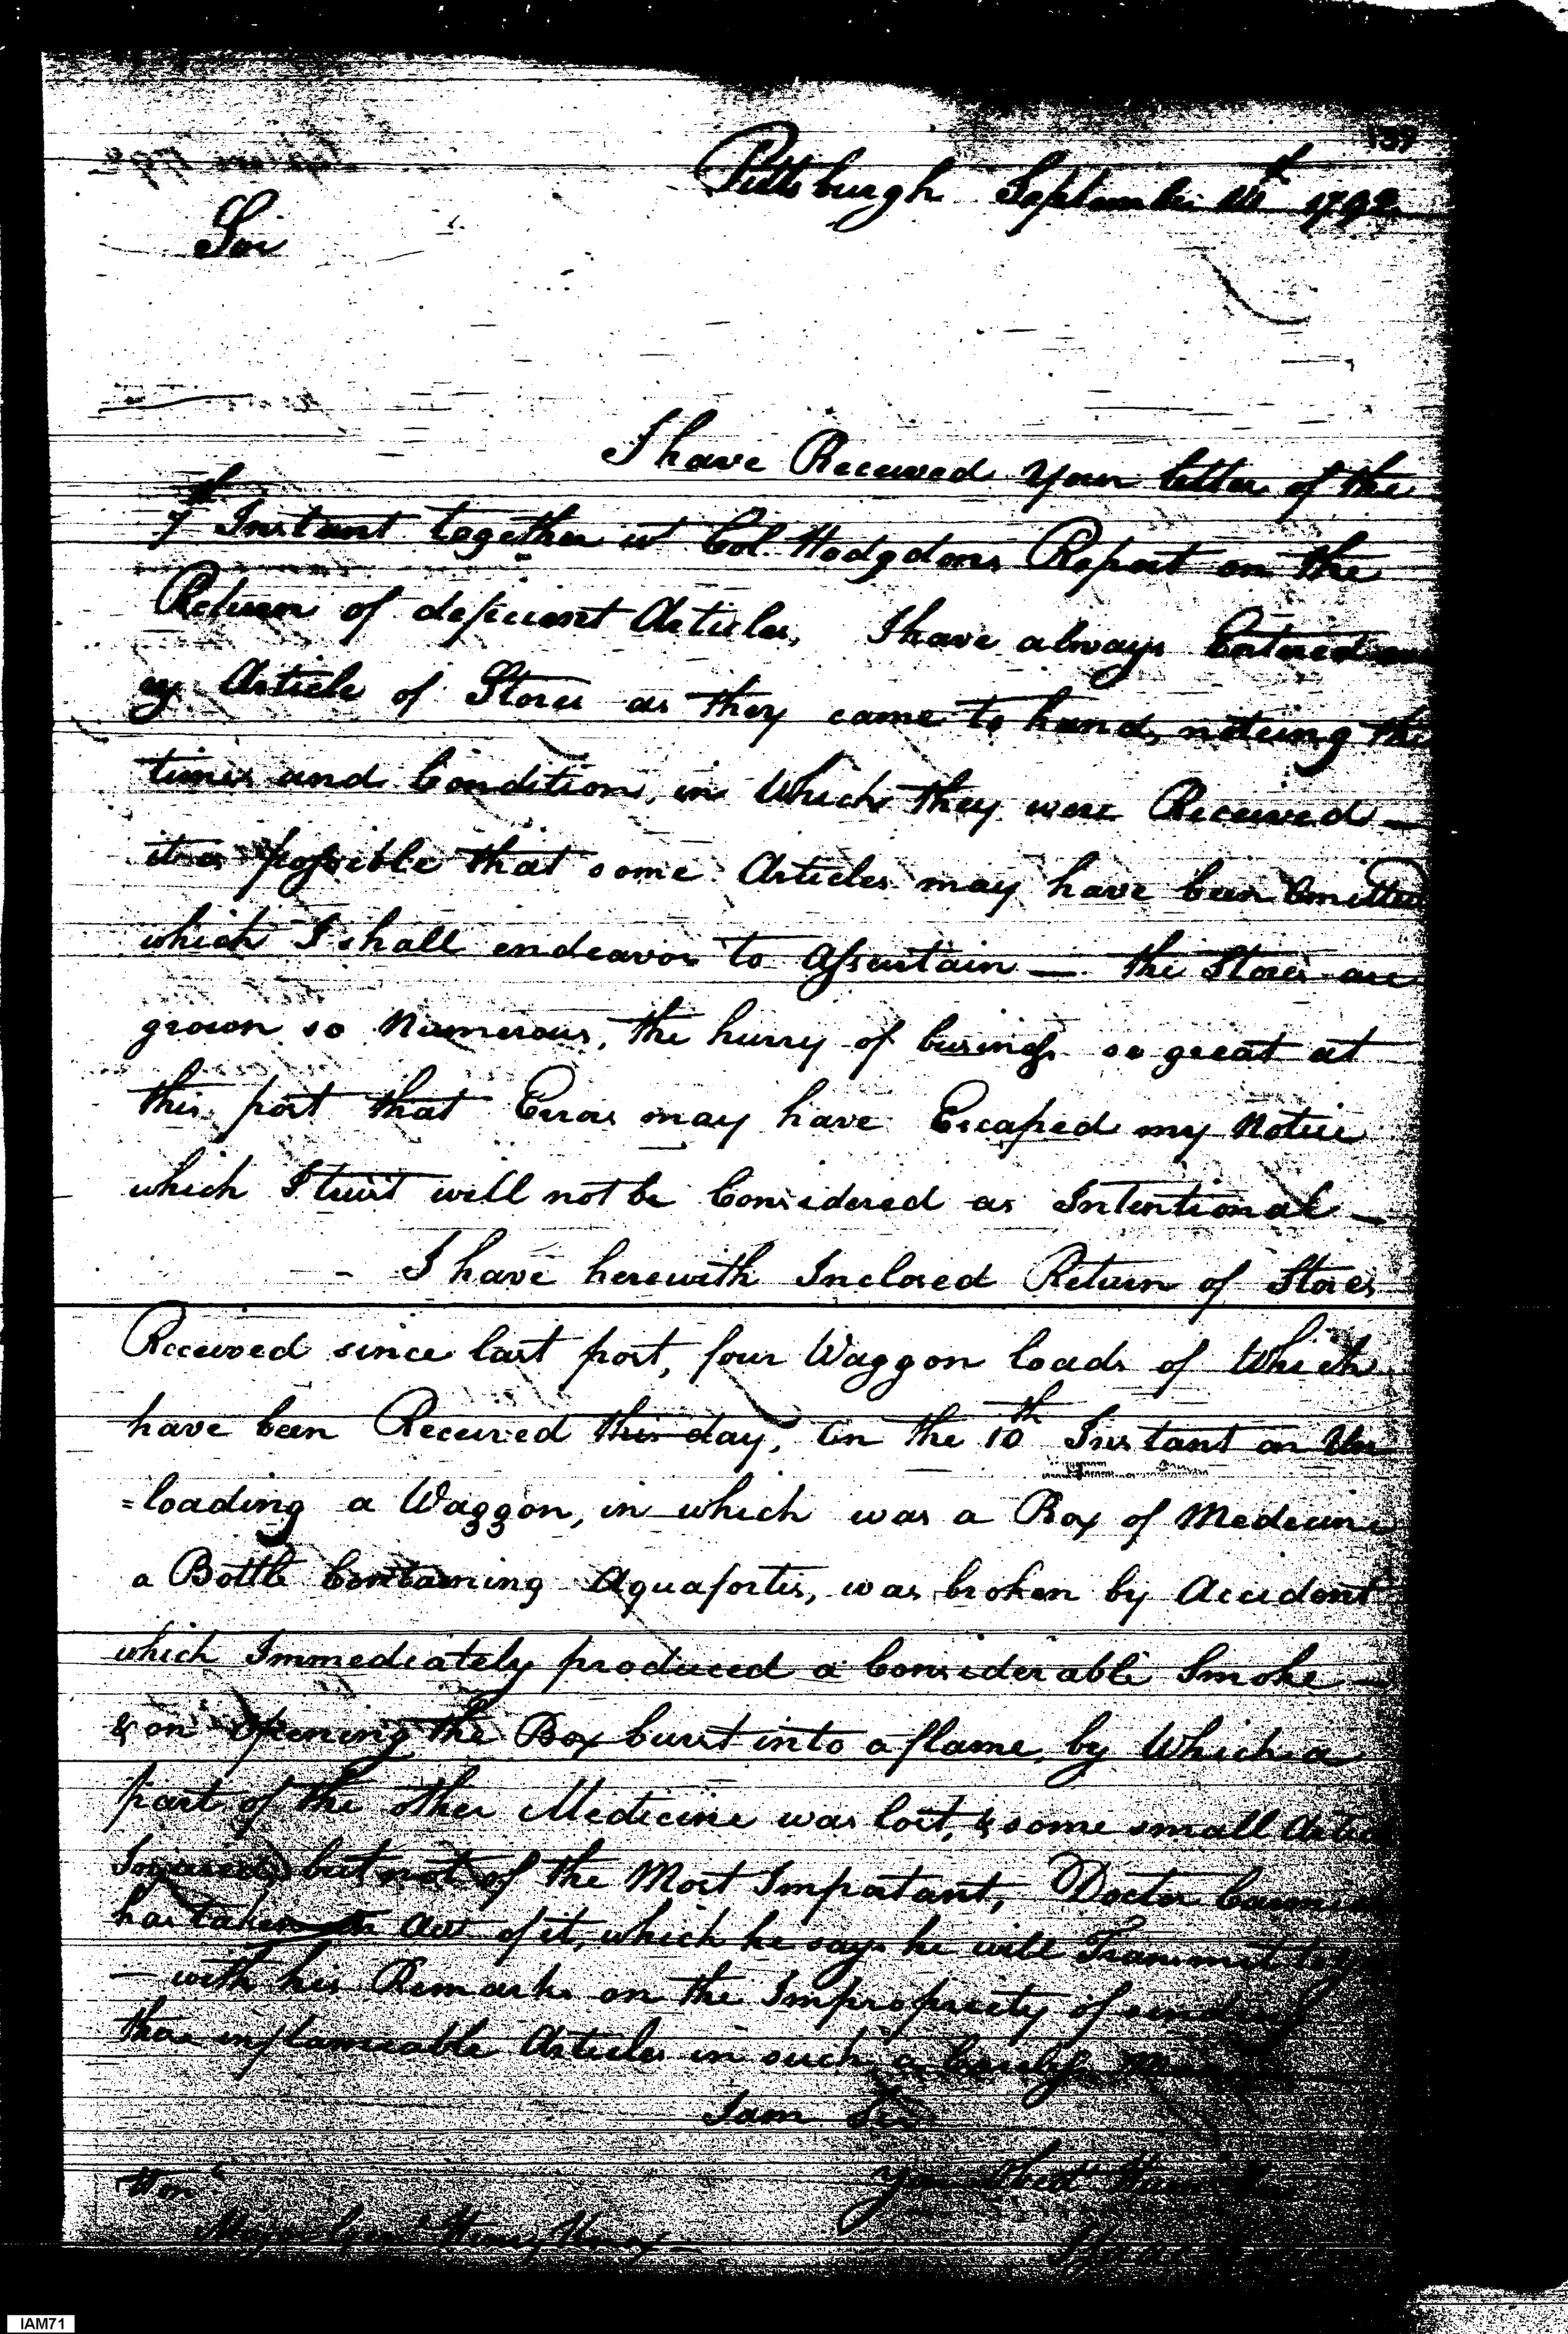 139
Pittsburgh September 14th 1792
Sir
I have Received Your letter of the
7th Instant together wt Col. Hodgdons Report on the
Return of deficient Articles, I have always Entered
ey Article of Stores as they came to hand, noteing the
times and Condition, in Which they were Received —
it is possible that some Articles may have been Omitted
which I shall endeavor to Assertain — the Stores are
grown so Numerous, the hurry of business so great at
this post that Erros may have Escaped my Notice
which I trust will not be Considered as Intentional —
- I have herewith Inclosed Return of Stores
Received since last post, four Waggon loads of Which
have been Received this day, On the 10th Instant on Un
=loading a Waggon, in which was a Box of Medecine
a Bottle Containing Aquafortis, was broken by Accident
which Immediately produced a Considerable Smoke —
& on Opening the Box burst into a flame, by Which a
part of the other Medicine was lost, & some small Artic
Injured, but not of the Most Important, Doctor
has taken an Acct of it, which he says he will Transmit to
— with his Remarks on the Impropriety of sending
those inflameable Articles in such a Careless Manner
I am Sir
Your Obedt Humble
Honl
Major Genl Henry Knox —
Isaac
IAM71